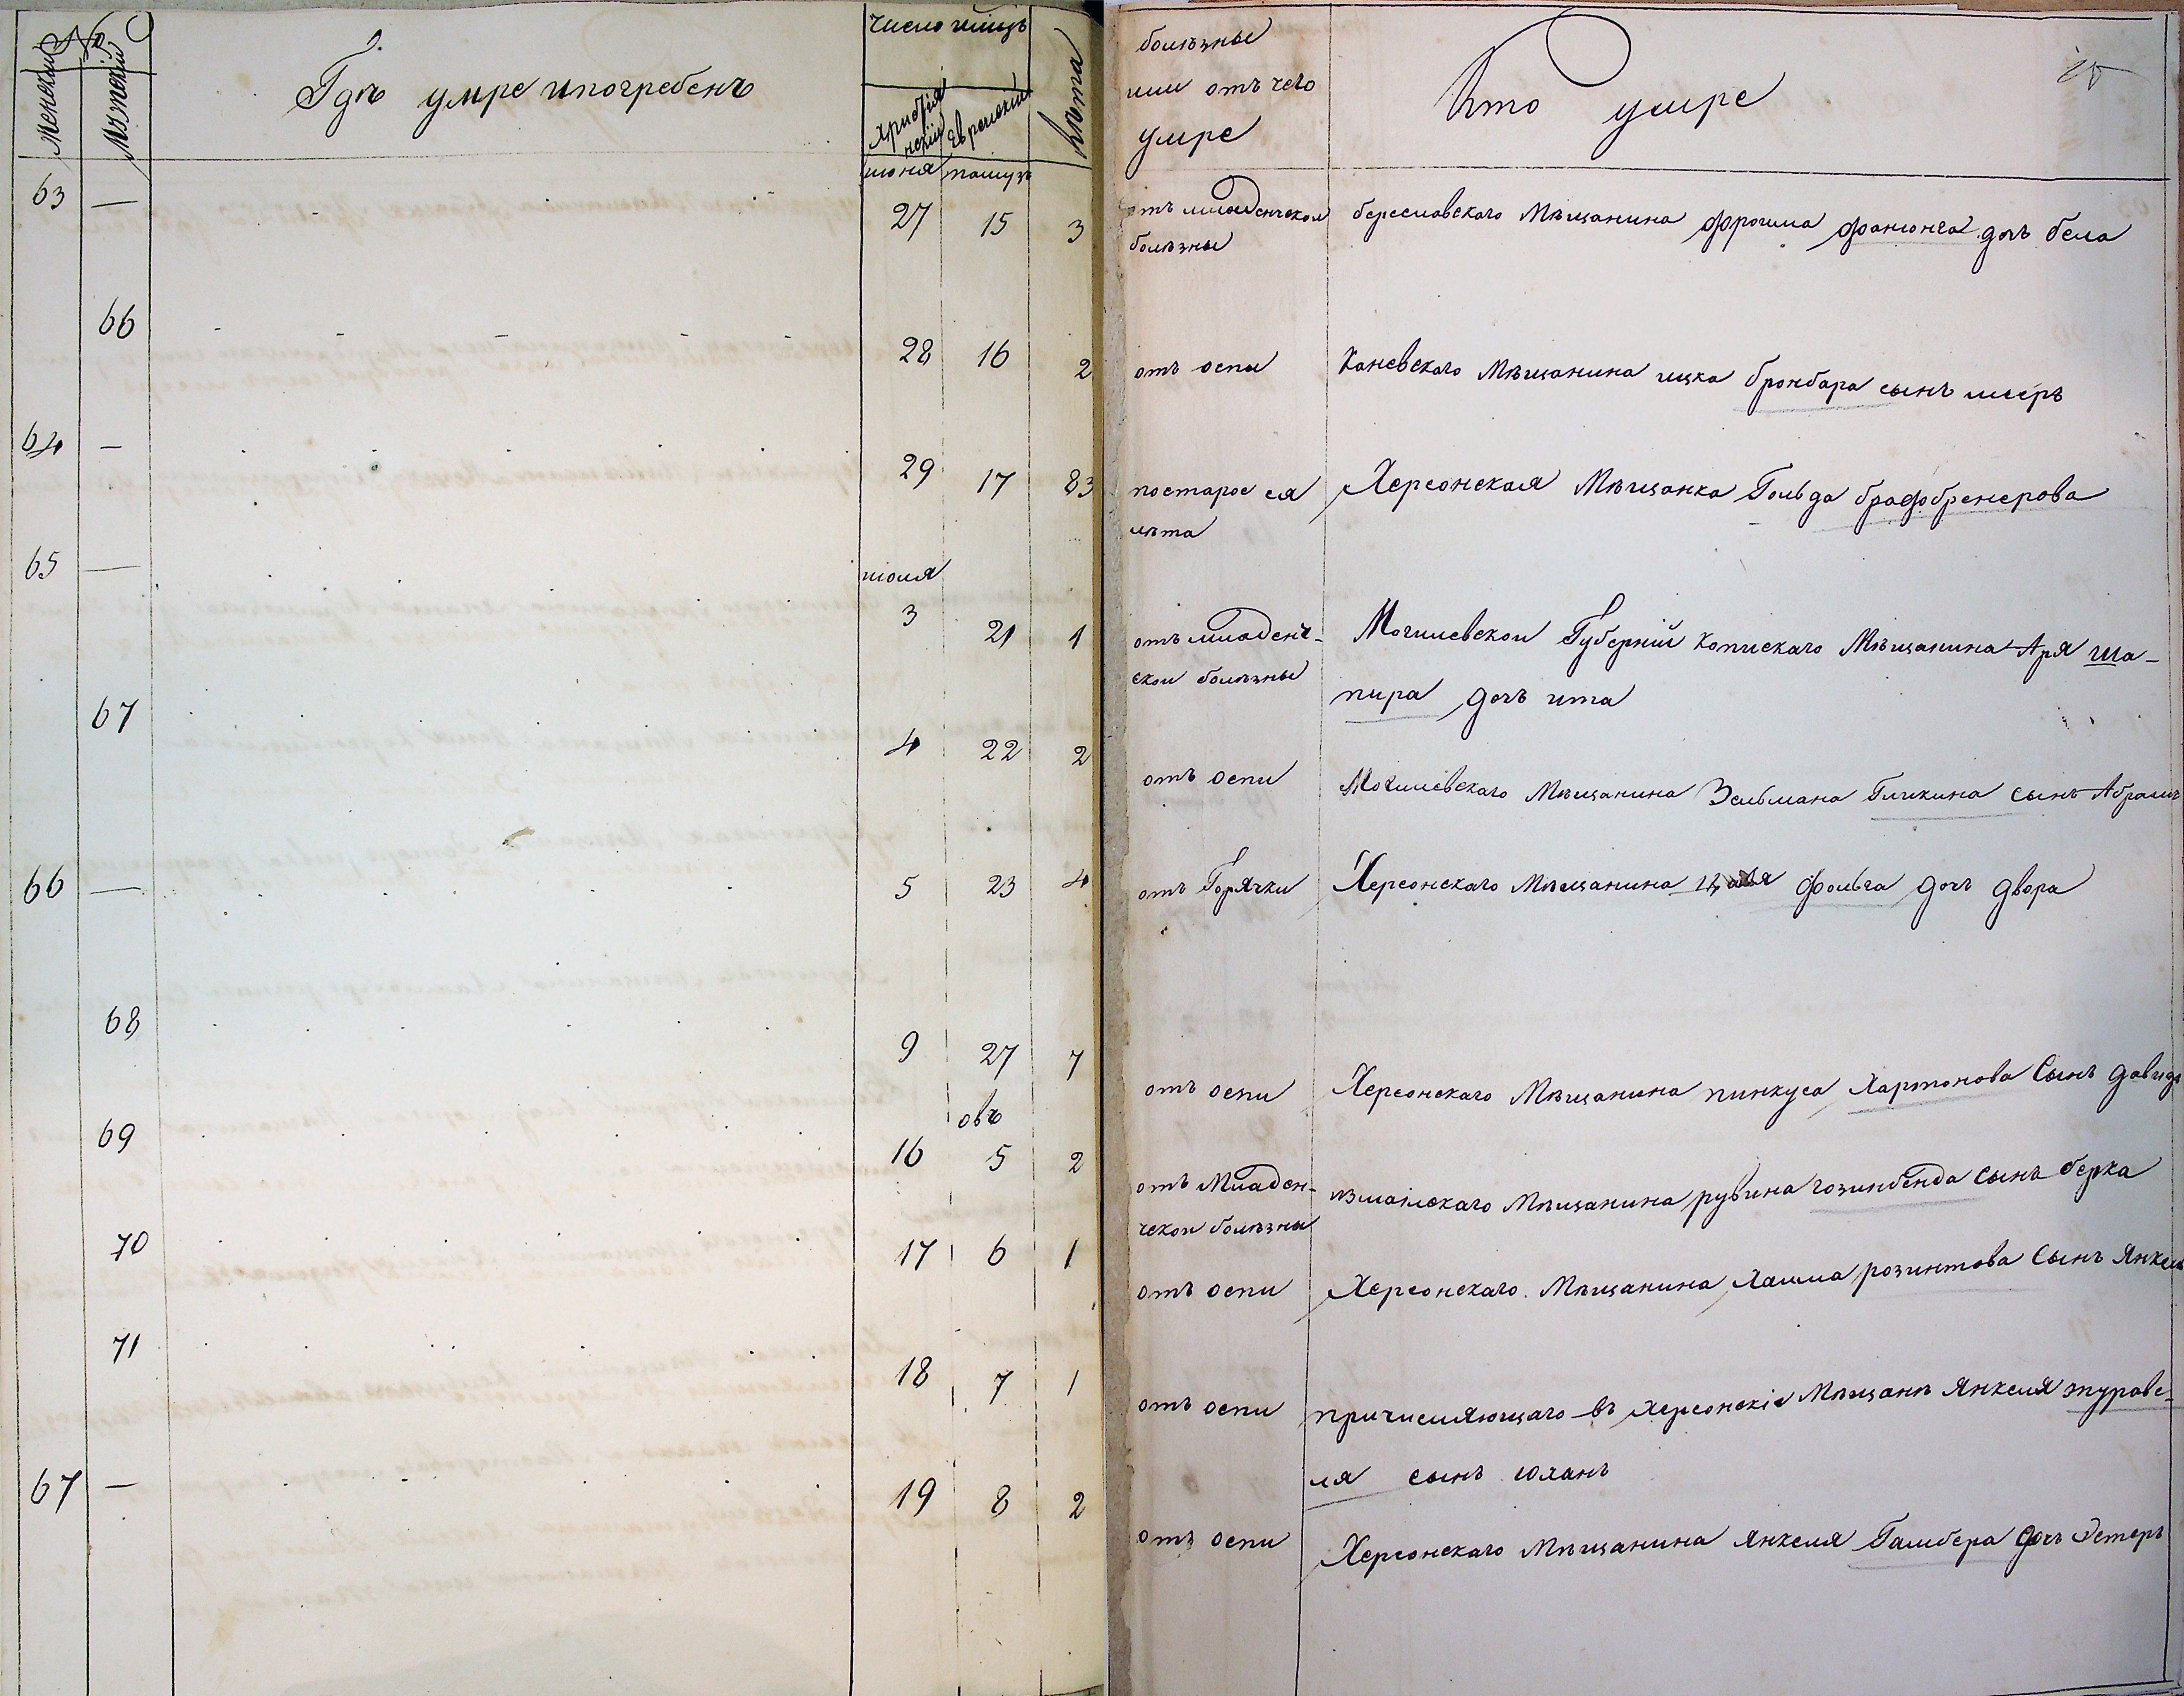 №
женский
Мужский
Где умре и погребенъ
Число и мцъ
христiянскiй
Еврейскiй
Лѣта
Июня Тамузъ
63 — 27 15 3
66 28 16 2
64 — 29 17 83
65 — июля
3 21 1
67 4 22 2
66 — 5 23 4
68 9 27 7
овъ
69 16 5 2
70 17 6 1
71 18 7 1
67 — 19 8 2
болѣзны
или отъ чего
умре
Кто умре
отъ младенческой береславскаго Мѣщанина Фроима дочь бела
болѣзны
отъ оспи Каневскаго Мѣщанина ицка бронбара сынъ мееръ
по старое ея Херсонская Мѣщанка Гольда
лѣта
отъ младенч- Могилевской Губернiи Копискаго Мѣщанина Аря ша-
ской болѣзны пира дочь ита
отъ оспи Могилевскаго Мѣщанина Зельмана Гликина сынъ Абрамъ
отъ Горячки Херсонскаго Мѣщанина фольга дочь двора
отъ оспи Херсонскаго Мѣщанина пинкуса Хартонова Сынъ давидъ
отъ Младен- измаилскаго Мѣщанина рувина гозинбенда сынъ берка
ческой болѣзны
отъ оспи Херсонскаго Мѣщанина Хаима розинтова Сынъ Янкель
отъ оспи причисляющаго въ Херсонскiе Мѣщане Янкеля журавe-
ля сынъ юханъ
отъ оспи Херсонскаго Мѣщанина Янкеля Гамбера дочь Эстеръ